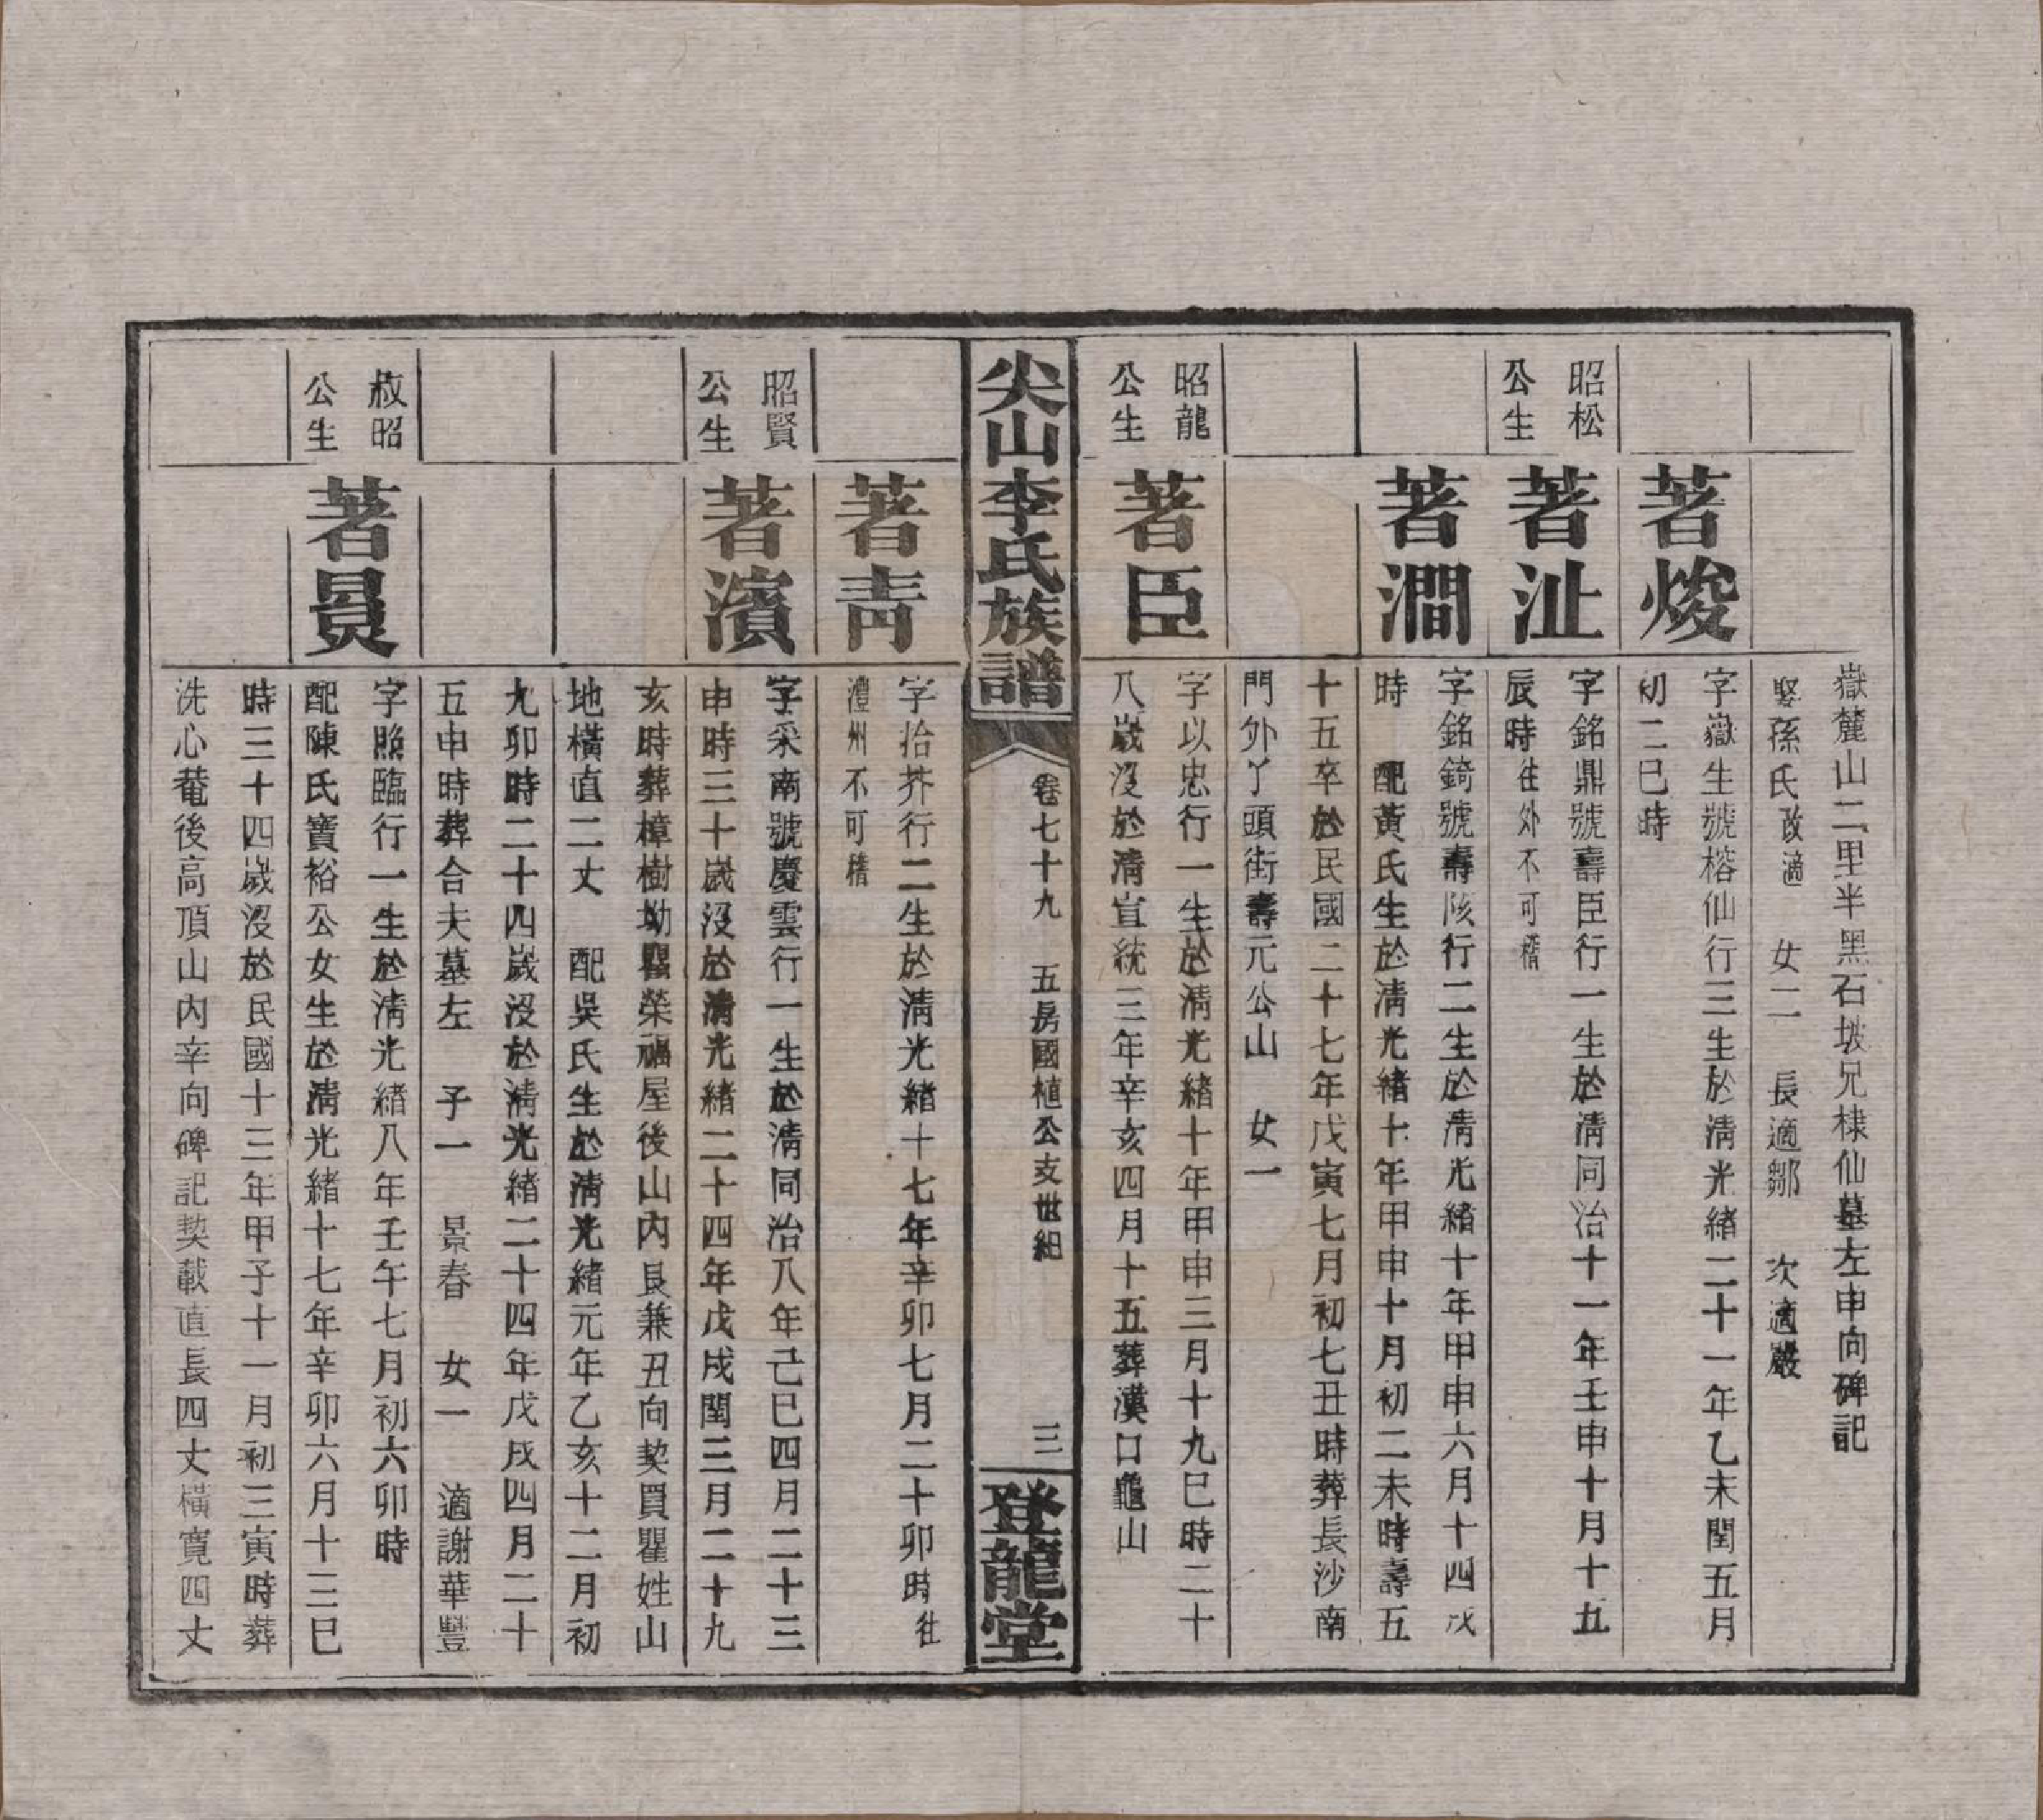 嶽麓山二里半黑石坡兄棣仙墓左申向碑記
娶孫氏改適 女二 長適鄒 次適嚴
著焌
字嶽生號榕仙行三生於清光緒二十一年乙未閏五月
初二巳時
昭松
公生
著沚
字銘鼎號壽臣行一生於清同治十一年壬申十月十五
辰時往外不可稽
著澗
字銘錡號壽陔行二生於清光緒十年甲申六月十四戌
時 配黃氏生於清光緒十年甲申十月初二未時壽五
十五卒於民國二十七年戊寅七月初七丑時葬長沙南
門外丫頭街壽元公山 女一
昭龍
公生
著臣
字以忠行一生於清光緒十年甲申三月十九巳時二十
八歲沒於清宣統三年辛亥四月十五葬漢口龜山
尖山李氏族譜
卷七十九 五房國植公支世紀
三
登龍堂
著青
字拾芥行二生於清光緒十七年辛卯七月二十卯時往
澧州不可稽
昭賢
公生
著濱
字采南號慶雲行一生於清同治八年己巳四月二十三
申時三十歲沒於清光緒二十四年戊戌閏三月二十九
亥時葬樟樹坳瞿榮福屋後山內艮兼丑向契買瞿姓山
地橫直二丈 配吳氏生於清光緒元年乙亥十二月初
九卯時二十四歲沒於清光緒二十四年戊戌四月二十
五申時葬合夫墓左 子一 景春 女一 適謝華豐
敘昭
公生
著員
字熙臨行一生於清光緒八年壬午七月初六卯時
配陳氏寶裕公女生於清光緒十七年辛卯六月十三巳
時三十四歲沒於民國十三年甲子十一月初三寅時葬
洗心菴後高頂山內辛向碑記契載直長四丈橫寬四丈